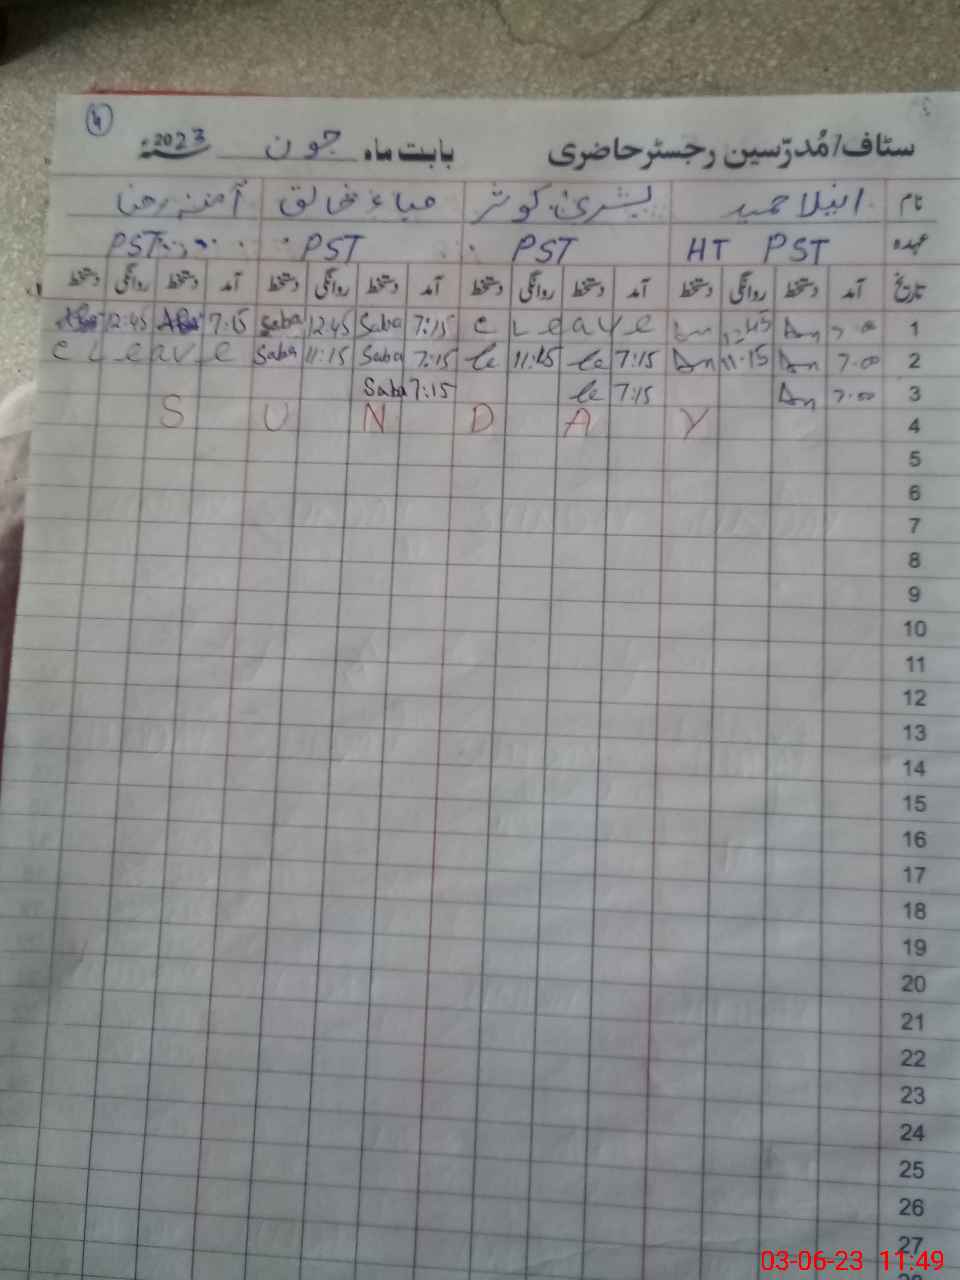 4
سٹاف/مُدرّسین رجسٹر حاضری بابت ماہ جون 2023ء
نام انیلا حمید بشریٰ کوثر صباء خالق آمنہ رضا
عہدہ HT PST PST PST PST
تاریخ آمد دستخط روانگی دستخط آمد دستخط روانگی دستخط آمد دستخط روانگی دستخط آمد دستخط روانگی دستخط
1 7:00 12:45 C Leave 7:15 Saba 12:45 Saba 7:15 12:45
2 7:00 11:15 7:15 11:15 7:15 Saba 11:15 Saba C Leave
3 7:00 7:15 7:15 Saba
4 SUNDAY
5
6
7
8
9
10
11
12
13
14
15
16
17
18
19
20
21
22
23
24
25
26
27
03-06-23 11:49